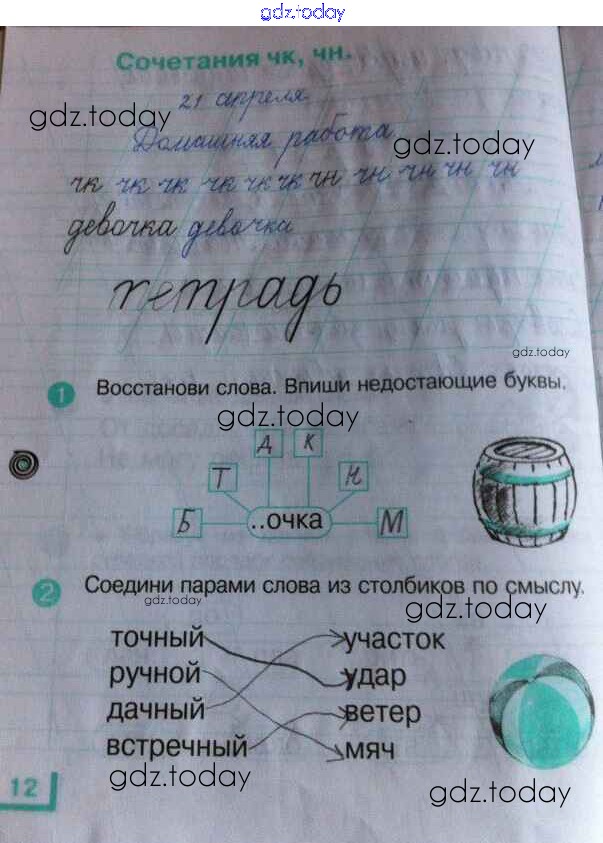 gdz.today
Сочетания чк, чн.
21 апреля
gdz.today
Домашняя работа.
gdz.today
чк чк чк чк чк чк чн чн чн чн чн
девочка девочка
тетрадь
gdz.today
1 Восстанови слова. Впиши недостающие буквы.
gdz.today
Д К
Т Н
Б ..очка М
2 Соедини парами слова из столбиков по смыслу.
gdz.today
gdz.today
точный участок
ручной удар
дачный ветер
встречный мяч
gdz.today
12
gdz.today